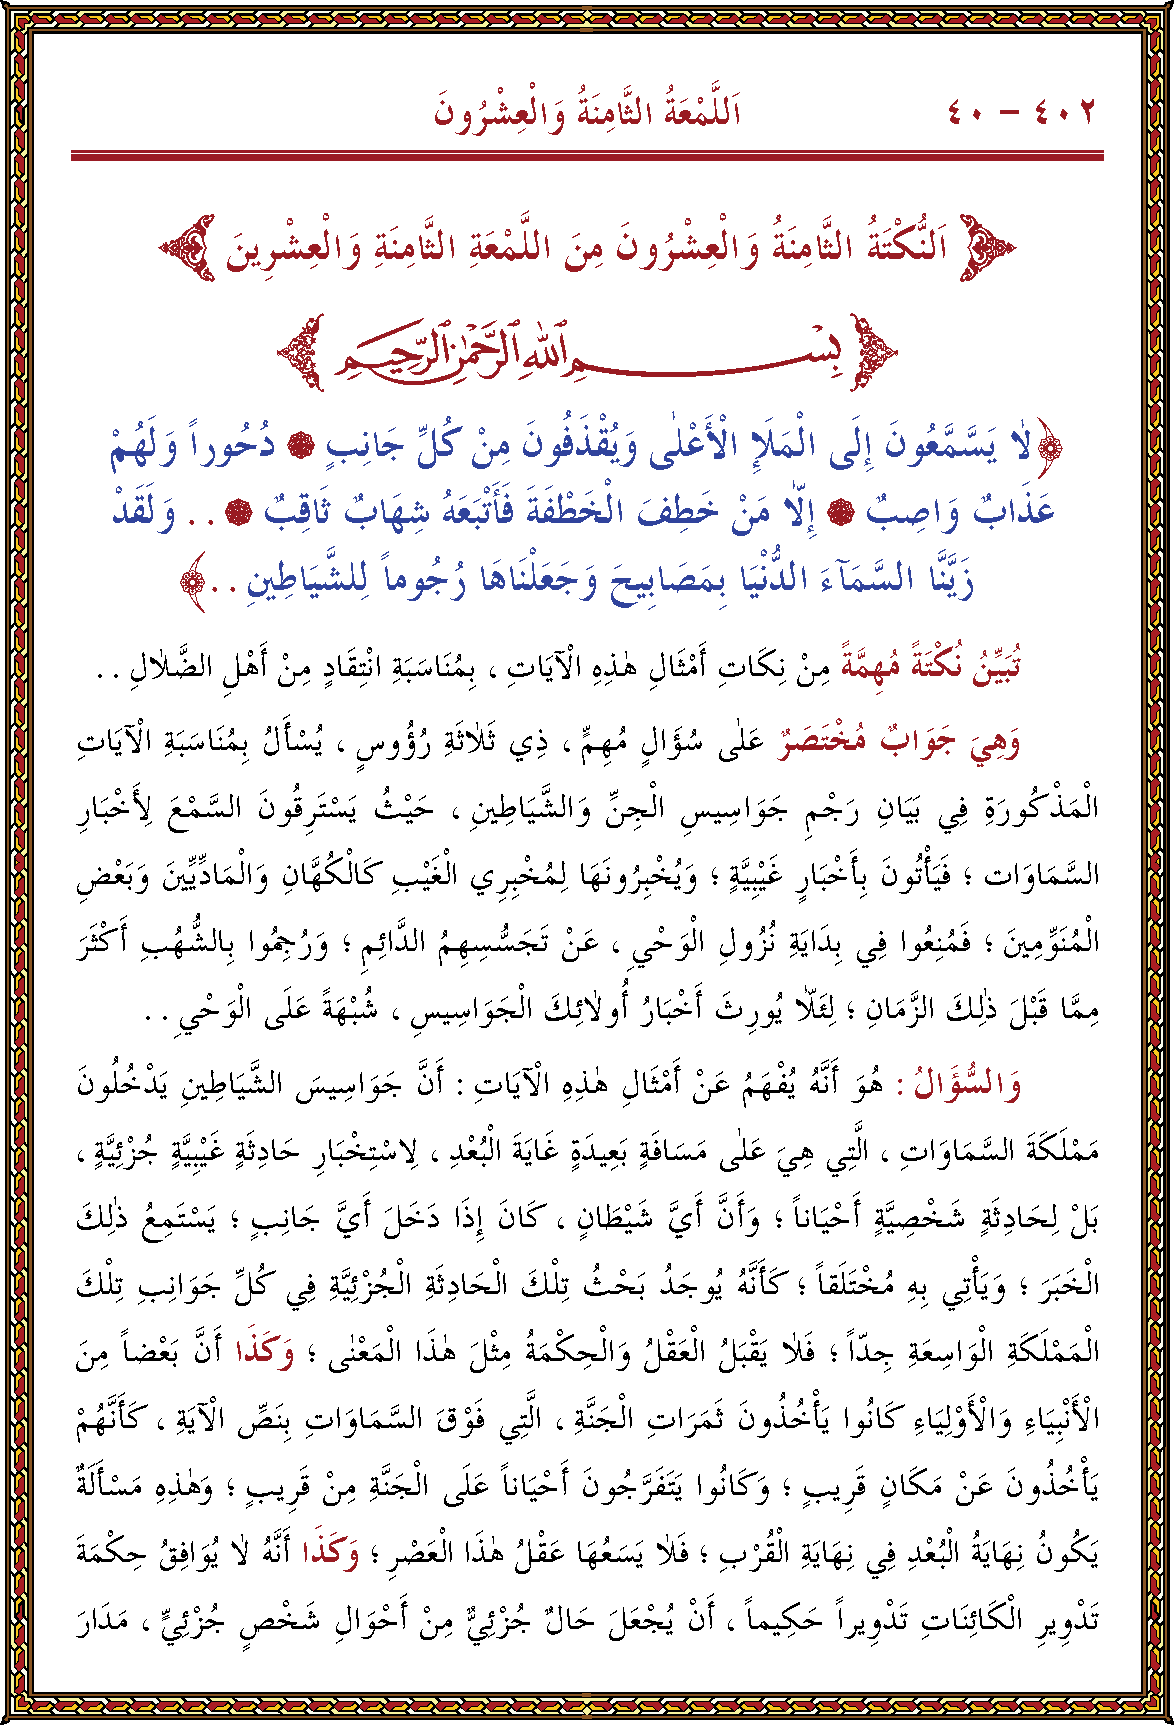 ٤٠٢ – ٤٠
اَللَّمْعَةُ الثَّامِنَةُ وَالْعِشْرُونَ
اَلنُّكْتَةُ الثَّامِنَةُ وَالْعِشْرُونَ مِنَ اللَّمْعَةِ الثَّامِنَةِ وَالْعِشْرِينَ
بِسْمِ اللهِ الرَّحْمٰنِ الرَّحِيمِ
﴿ لَا يَسَّمَّعُونَ إِلَى الْمَلَإِ الْأَعْلٰى وَيُقْذَفُونَ مِنْ كُلِّ جَانِبٍ ۞ دُحُوراً وَلَهُمْ
عَذَابٌ وَاصِبٌ ۞ إِلَّا مَنْ خَطِفَ الْخَطْفَةَ فَأَتْبَعَهُ شِهَابٌ ثَاقِبٌ ۞ . . وَلَقَدْ
زَيَّنَّا السَّمَآءَ الدُّنْيَا بِمَصَابِيحَ وَجَعَلْنَاهَا رُجُوماً لِلشَّيَاطِينِ . . ﴾
تُبَيِّنُ نُكْتَةً مُهِمَّةً مِنْ نِكَاتِ أَمْثَالِ هٰذِهِ الْآيَاتِ ، بِمُنَاسَبَةِ انْتِقَادٍ مِنْ أَهْلِ الضَّلَالِ . .
وَهِيَ جَوَابٌ مُخْتَصَرٌ عَلٰى سُؤَالٍ مُهِمٍّ ، ذِي ثَلَاثَةِ رُؤُوسٍ ، يُسْأَلُ بِمُنَاسَبَةِ الْآيَاتِ
الْمَذْكُورَةِ فِي بَيَانِ رَجْمِ جَوَاسِيسِ الْجِنِّ وَالشَّيَاطِينِ ، حَيْثُ يَسْتَرِقُونَ السَّمْعَ لِأَخْبَارِ
السَّمَاوَاتِ ؛ فَيَأْتُونَ بِأَخْبَارٍ غَيْبِيَّةٍ ؛ وَيُخْبِرُونَهَا لِمُخْبِرِي الْغَيْبِ كَالْكُهَّانِ وَالْمَادِّيِّينَ وَبَعْضِ
الْمُنَوِّمِينَ ؛ فَمُنِعُوا فِي بِدَايَةِ نُزُولِ الْوَحْيِ ، عَنْ تَجَسُّسِهِمُ الدَّائِمِ ؛ وَرُجِمُوا بِالشُّهُبِ أَكْثَرَ
مِمَّا قَبْلَ ذٰلِكَ الزَّمَانِ ؛ لِئَلَّا يُورِثَ أَخْبَارُ أُولٰئِكَ الْجَوَاسِيسِ ، شُبْهَةً عَلَى الْوَحْيِ . .
وَالسُّؤَالُ : هُوَ أَنَّهُ يُفْهَمُ عَنْ أَمْثَالِ هٰذِهِ الْآيَاتِ : أَنَّ جَوَاسِيسَ الشَّيَاطِينِ يَدْخُلُونَ
مَمْلَكَةَ السَّمَاوَاتِ ، الَّتِي هِيَ عَلٰى مَسَافَةٍ بَعِيدَةٍ غَايَةَ الْبُعْدِ ، لِاسْتِخْبَارِ حَادِثَةٍ غَيْبِيَّةٍ جُزْئِيَّةٍ ،
بَلْ لِحَادِثَةٍ شَخْصِيَّةٍ أَحْيَاناً ؛ وَأَنَّ أَيَّ شَيْطَانٍ ، كَانَ إِذَا دَخَلَ أَيَّ جَانِبٍ ؛ يَسْتَمِعُ ذٰلِكَ
الْخَبَرَ ؛ وَيَأْتِي بِهِ مُخْتَلَقاً ؛ كَأَنَّهُ يُوجَدُ بَحْثُ تِلْكَ الْحَادِثَةِ الْجُزْئِيَّةِ فِي كُلِّ جَوَانِبِ تِلْكَ
الْمَمْلَكَةِ الْوَاسِعَةِ جِدّاً ؛ فَلَا يَقْبَلُ الْعَقْلُ وَالْحِكْمَةُ مِثْلَ هٰذَا الْمَعْنٰى ؛ وَكَذَا أَنَّ بَعْضاً مِنَ
الْأَنْبِيَاءِ وَالْأَوْلِيَاءِ كَانُوا يَأْخُذُونَ ثَمَرَاتِ الْجَنَّةِ ، الَّتِي فَوْقَ السَّمَاوَاتِ بِنَصِّ الْآيَةِ ، كَأَنَّهُمْ
يَأْخُذُونَ عَنْ مَكَانٍ قَرِيبٍ ؛ وَكَانُوا يَتَفَرَّجُونَ أَحْيَاناً عَلَى الْجَنَّةِ مِنْ قَرِيبٍ ؛ وَهٰذِهِ مَسْأَلَةٌ
يَكُونُ نِهَايَةُ الْبُعْدِ فِي نِهَايَةِ الْقُرْبِ ؛ فَلَا يَسَعُهَا عَقْلُ هٰذَا الْعَصْرِ ؛ وَكَذَا أَنَّهُ لَا يُوَافِقُ حِكْمَةَ
تَدْوِيرِ الْكَائِنَاتِ تَدْوِيراً حَكِيماً ، أَنْ يُجْعَلَ حَالٌ جُزْئِيٌّ مِنْ أَحْوَالِ شَخْصٍ جُزْئِيٍّ ، مَدَارَ